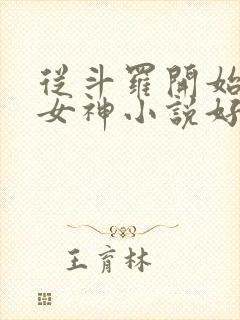 從斗羅開始
女神小說好
王育林